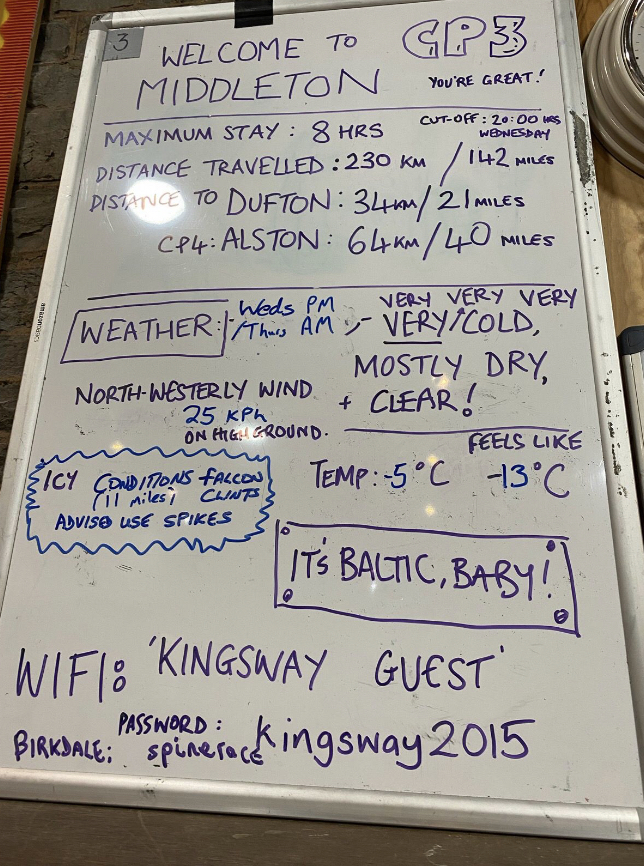 3
WELCOME TO CP3
MIDDLETON YOU'RE GREAT!
MAXIMUM STAY: 8 HRS
CUT-OFF: 20:00 HRS
WEDNESDAY
DISTANCE TRAVELLED: 230 KM / 142 MILES
DISTANCE TO DUFTON: 34KM/21 MILES
CP4: ALSTON: 64KM/40 MILES
WEATHER:- Weds PM
/Thurs AM :-
VERY VERY VERY
VERY/COLD,
MOSTLY DRY,
+ CLEAR!
NORTH-WESTERLY WIND
25 KPh
ON HIGH GROUND.
FEELS LIKE
TEMP: -5°C -13°C
ICY CONDITIONS FALCON
(11 miles) CLINTS
ADVISE USE SPIKES
IT'S BALTIC, BABY!
WIFI: 'KINGSWAY GUEST'
PASSWORD: kingsway2015
BIRKDALE: spinerace